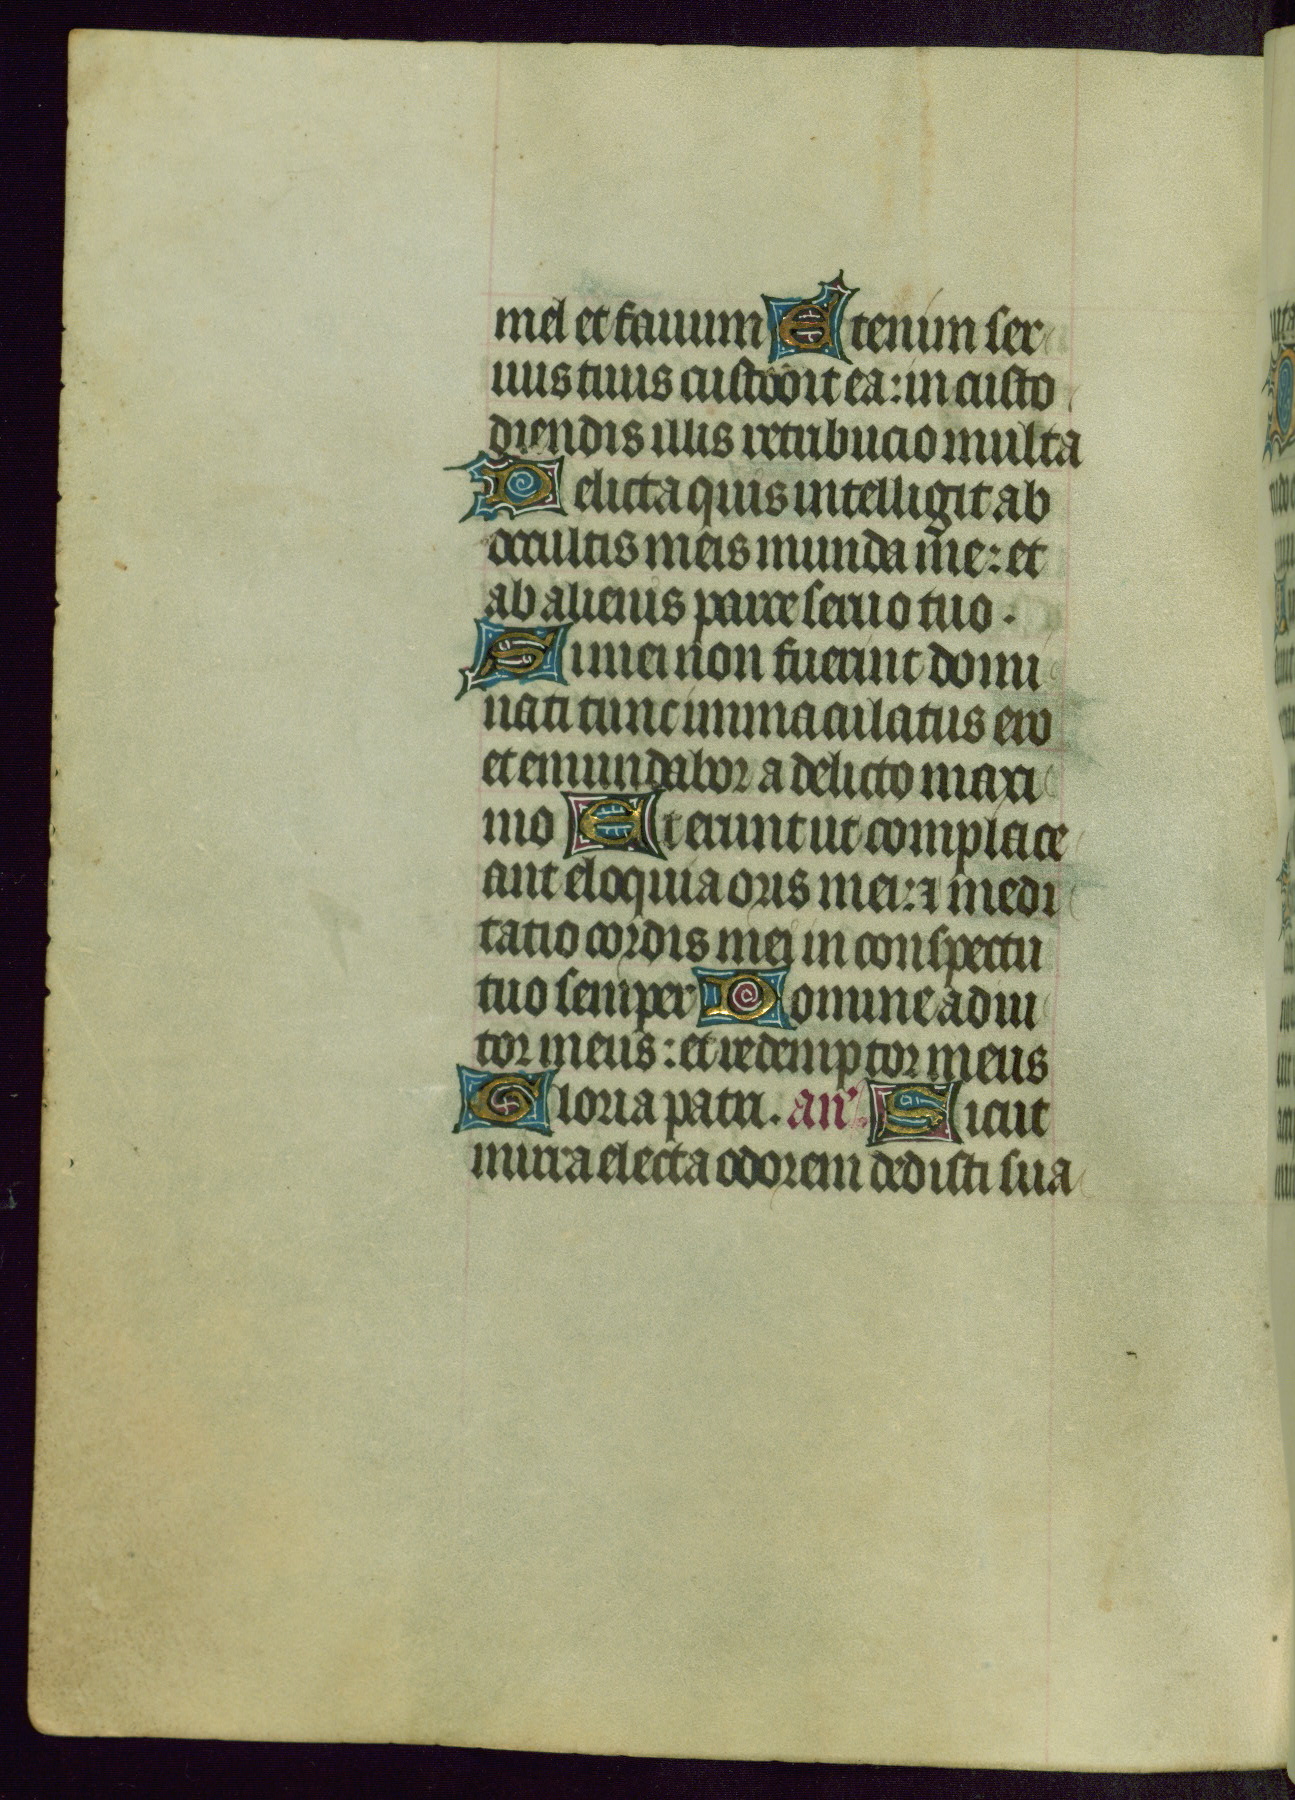 mel et fauum Etenim ser
uus tuus custodit ea: in custo
diendis illis retribucio multa
Delicta quis intelligit ab
occultis meis munda me: et
ab alienis parce seruo tuo.
Si mei non fuerint domi
nati tunc immaculatus ero
et emundabor a delicto maxi
mo Et erunt ut complace
ant eloquia oris mei: ⁊ medi
tatio cordis mei in conspectu
tuo semper Domine adiu
tor meus: et redemptor meus
Gloria patri. an̄. Sicut
mirra electa odorem dedisti sua